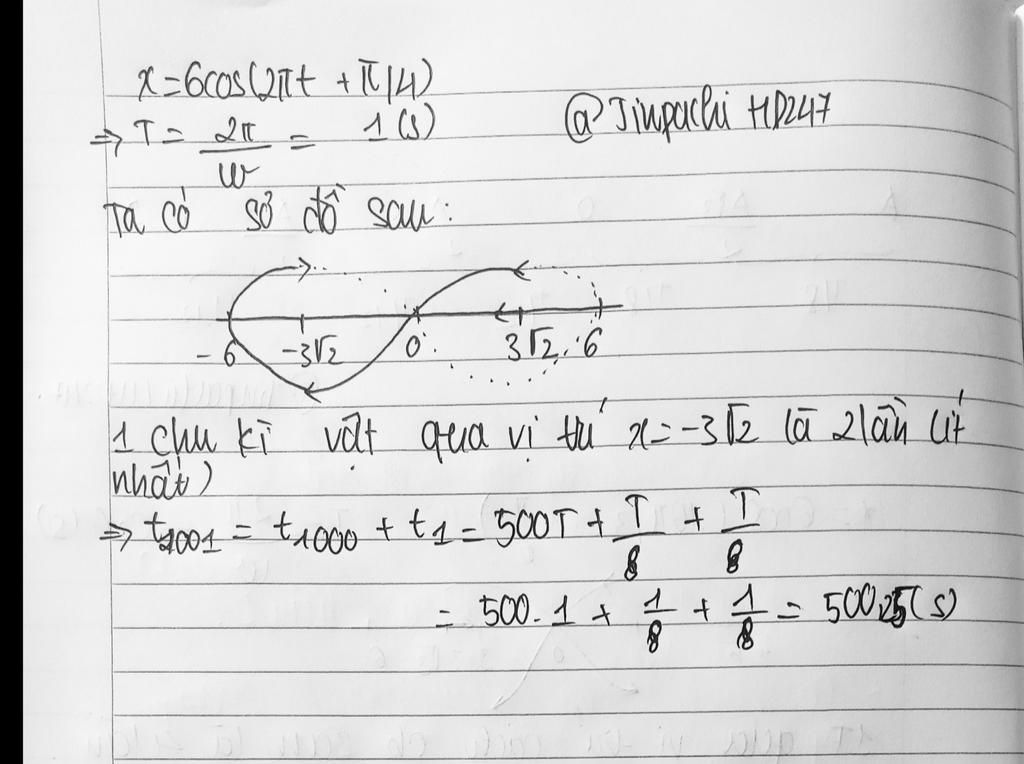 x=6cos(2πt + π/4)
⇒ T = 2π/w = 1 (s)
@Jinpachi HD247
Ta có sơ đồ sau:
-6 -3√2 0 3√2 6
1 chu kì vật qua vị trí x=-3√2 là 2 lần (ít
nhất)
⇒ t2001 = t1000 + t1 = 500T + T/8 + T/8
= 500.1 + 1/8 + 1/8 = 500,25(s)